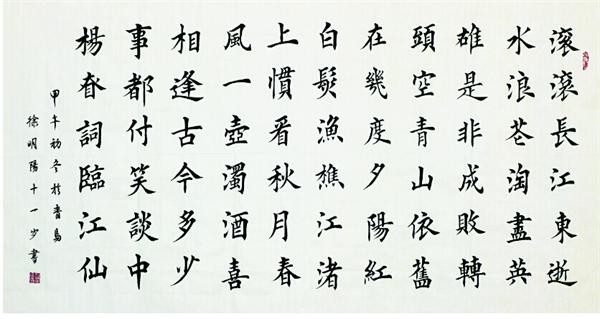 滾滾長江東逝
水浪花淘盡英
雄是非成敗轉
頭空青山依舊
在幾度夕陽紅
白髮漁樵江渚
上慣看秋月春
風一壺濁酒喜
相逢古今多少
事都付笑談中
楊眘詞臨江仙
甲午初冬於青島
徐明陽十一岁書